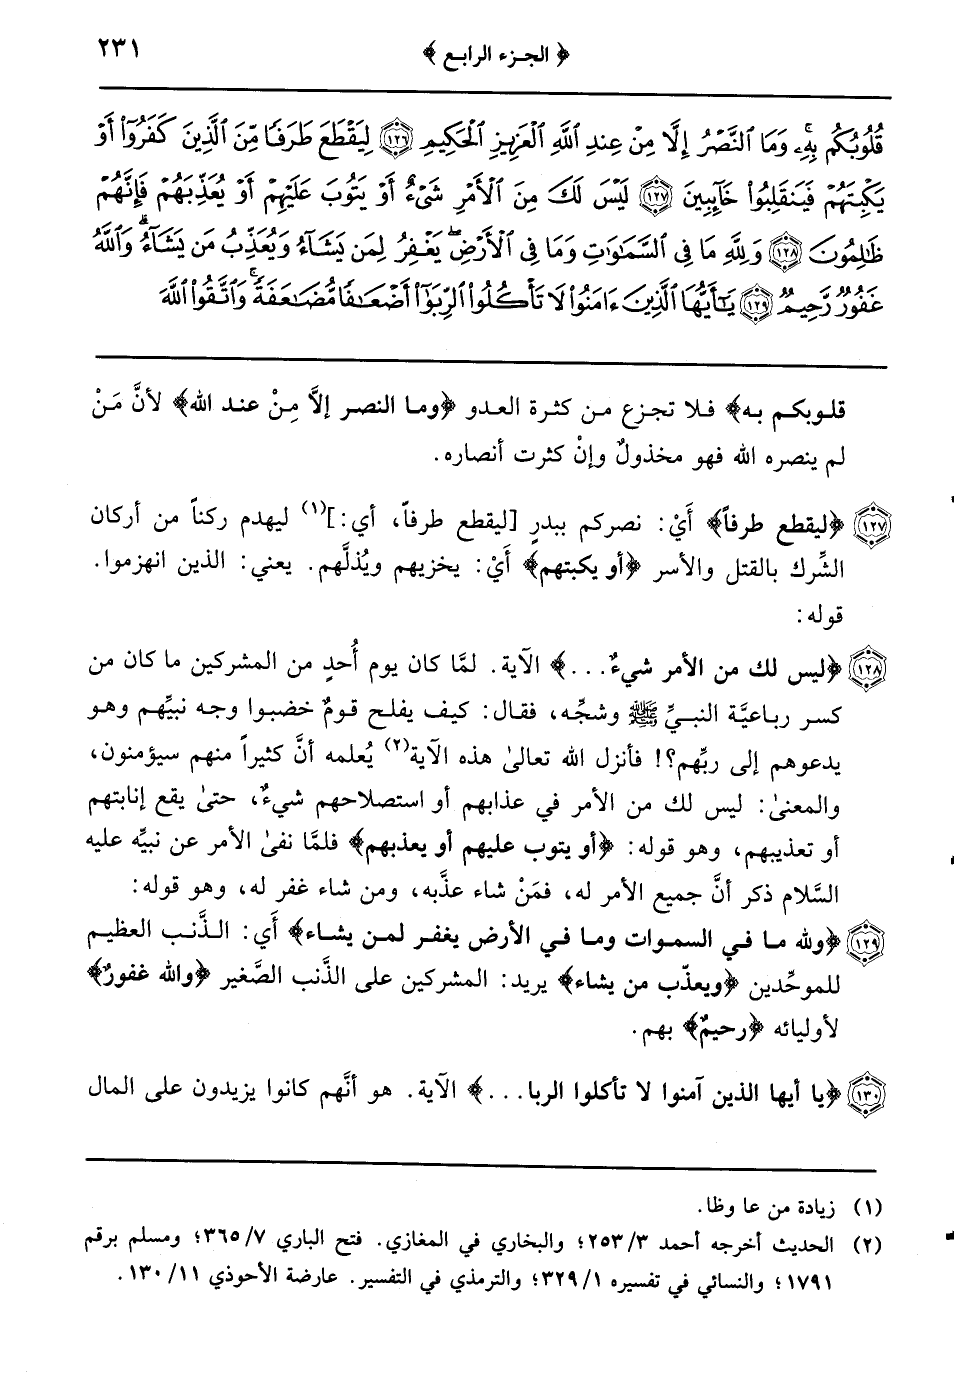 ﴿ الجزء الرابع ﴾ ٢٣١
قُلُوبُكُم بِهِۦۗ وَمَا ٱلنَّصۡرُ إِلَّا مِنۡ عِندِ ٱللَّهِ ٱلۡعَزِيزِ ٱلۡحَكِيمِ ١٢٦ لِيَقۡطَعَ طَرَفٗا مِّنَ ٱلَّذِينَ كَفَرُوٓاْ أَوۡ
يَكۡبِتَهُمۡ فَيَنقَلِبُواْ خَآئِبِينَ ١٢٧ لَيۡسَ لَكَ مِنَ ٱلۡأَمۡرِ شَيۡءٌ أَوۡ يَتُوبَ عَلَيۡهِمۡ أَوۡ يُعَذِّبَهُمۡ فَإِنَّهُمۡ
ظَٰلِمُونَ ١٢٨ وَلِلَّهِ مَا فِي ٱلسَّمَٰوَٰتِ وَمَا فِي ٱلۡأَرۡضِۚ يَغۡفِرُ لِمَن يَشَآءُ وَيُعَذِّبُ مَن يَشَآءُۚ وَٱللَّهُ
غَفُورٞ رَّحِيمٞ ١٢٩ يَٰٓأَيُّهَا ٱلَّذِينَ ءَامَنُواْ لَا تَأۡكُلُواْ ٱلرِّبَوٰٓاْ أَضۡعَٰفٗا مُّضَٰعَفَةٗۖ وَٱتَّقُواْ ٱللَّهَ
قلوبكم به﴾ فلا تجزع من كثرة العدو ﴿وما النصر إلاَّ مِنْ عند الله﴾ لأنَّ مَنْ
لم ينصره الله فهو مخذولٌ وإنْ كثرت أنصاره.
١٢٧ ﴿ليقطع طرفاً﴾ أَيْ: نصركم ببدرٍ [ليقطع طرفاً، أي:](١) ليهدم ركناً من أركان
الشِّرك بالقتل والأسر ﴿أو يكبتهم﴾ أَيْ: يخزيهم ويُذلَّهم. يعني: الذين انهزموا.
قوله:
١٢٨ ﴿ليس لك من الأمر شيءٌ...﴾ الآية. لمَّا كان يوم أُحدٍ من المشركين ما كان من
كسر رباعيَّة النبيِّ ﷺ وشجِّه، فقال: كيف يفلح قومٌ خضبوا وجه نبيِّهم وهو
يدعوهم إلى ربِّهم؟! فأنزل الله تعالىٰ هذه الآية(٢) يُعلمه أنَّ كثيراً منهم سيؤمنون،
والمعنىٰ: ليس لك من الأمر في عذابهم أو استصلاحهم شيءٌ، حتىٰ يقع إنابتهم
أو تعذيبهم، وهو قوله: ﴿أو يتوب عليهم أو يعذبهم﴾ فلمَّا نفىٰ الأمر عن نبيِّه عليه
السَّلام ذكر أنَّ جميع الأمر له، فمَنْ شاء عذَّبه، ومن شاء غفر له، وهو قوله:
١٢٩ ﴿ولله ما في السموات وما في الأرض يغفر لمن يشاء﴾ أَي: الذَّنب العظيم
للموحِّدين ﴿ويعذّب من يشاء﴾ يريد: المشركين على الذَّنب الصَّغير ﴿والله غفورٌ﴾
لأوليائه ﴿رحيمٌ﴾ بهم.
١٣٠ ﴿يا أيها الذين آمنوا لا تأكلوا الربا...﴾ الآية. هو أنَّهم كانوا يزيدون على المال
(١) زيادة من عا وظا.
(٢) الحديث أخرجه أحمد ٢٥٣/٣؛ والبخاري في المغازي. فتح الباري ٣٦٥/٧؛ ومسلم برقم
١٧٩١؛ والنسائي في تفسيره ٣٢٩/١؛ والترمذي في التفسير. عارضة الأحوذي ١٣٠/١١.